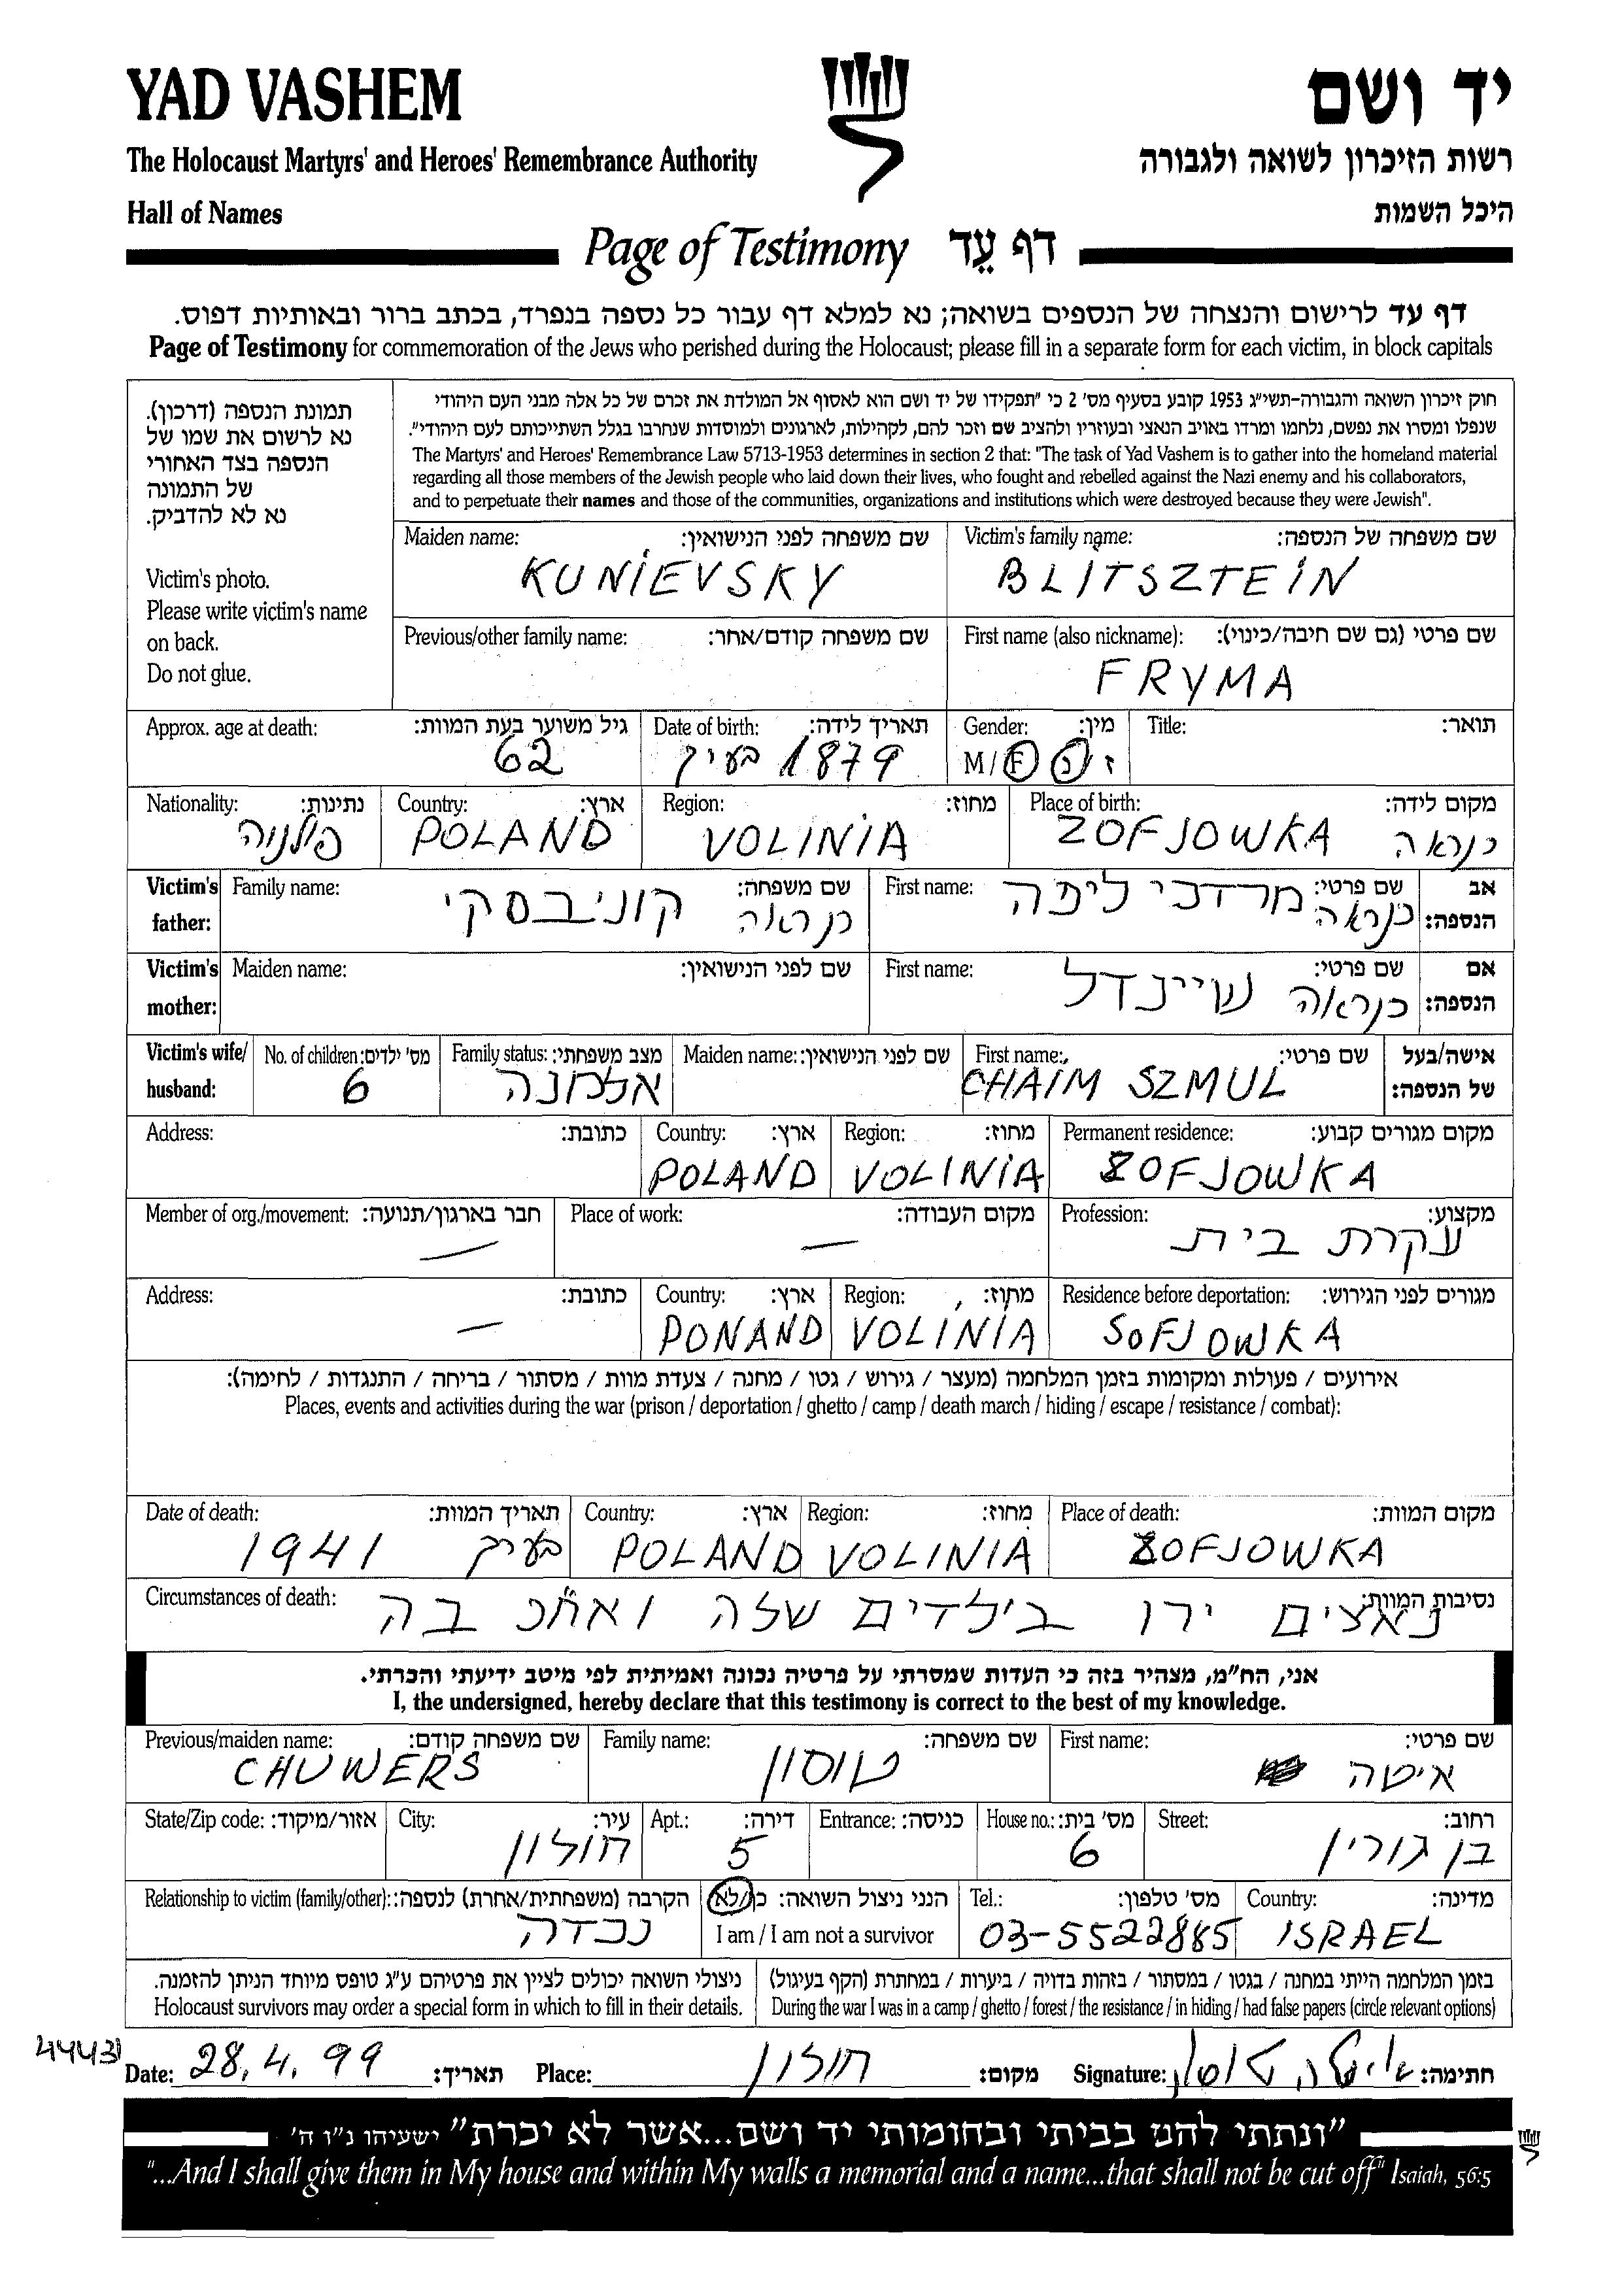 YAD VASHEM
יד ושם
The Holocaust Martyrs' and Heroes' Remembrance Authority
רשות הזיכרון לשואה ולגבורה
Hall of Names
היכל השמות
Page of Testimony דף עֵד
דף עד לרישום והנצחה של הנספים בשואה; נא למלא דף עבור כל נספה בנפרד, בכתב ברור ובאותיות דפוס.
Page of Testimony for commemoration of the Jews who perished during the Holocaust; please fill in a separate form for each victim, in block capitals
תמונת הנספה (דרכון).
נא לרשום את שמו של
הנספה בצד האחורי
של התמונה
נא לא להדביק.
Victim's photo.
Please write victim's name
on back.
Do not glue.
חוק זיכרון השואה והגבורה-תשי"ג 1953 קובע בסעיף מס' 2 כי "תפקידו של יד ושם הוא לאסוף אל המולדת את זכרם של כל אלה מבני העם היהודי
שנפלו ומסרו את נפשם, נלחמו ומרדו באויב הנאצי ובעוזריו ולהציב שם וזכר להם, לקהילות, לארגונים ולמוסדות שנחרבו בגלל השתייכותם לעם היהודי".
The Martyrs' and Heroes' Remembrance Law 5713-1953 determines in section 2 that: "The task of Yad Vashem is to gather into the homeland material
regarding all those members of the Jewish people who laid down their lives, who fought and rebelled against the Nazi enemy and his collaborators,
and to perpetuate their names and those of the communities, organizations and institutions which were destroyed because they were Jewish".
Maiden name: שם משפחה לפני הנישואין: Victim's family name: שם משפחה של הנספה:
KUNIEVSKY BLITSZTEIN
Previous/other family name: שם משפחה קודם/אחר: First name (also nickname): שם פרטי (גם שם חיבה/כינוי):
FRYMA
Approx. age at death: גיל משוער בעת המוות: Date of birth: תאריך לידה: Gender: מין: Title: תואר:
62 בערך 1879 M/F ז/נ
Nationality: נתינות: Country: ארץ: Region: מחוז: Place of birth: מקום לידה:
פולניה POLAND VOLINIA ZOFJOWKA כנראה
Victim's father: Family name: שם משפחה: First name: שם פרטי: אב הנספה:
קוניבסקי כנראה מרדכי ליפה כנראה
Victim's mother: Maiden name: שם לפני הנישואין: First name: שם פרטי: אם הנספה:
שיינדל כנראה
Victim's wife/ husband: No. of children: מס' ילדים: Family status: מצב משפחתי: Maiden name: שם לפני הנישואין: First name: שם פרטי: אישה/בעל של הנספה:
6 אלמנה CHAIM SZMUL
Address: כתובת: Country: ארץ: Region: מחוז: Permanent residence: מקום מגורים קבוע:
POLAND VOLINIA ZOFJOWKA
Member of org./movement: חבר בארגון/תנועה: Place of work: מקום העבודה: Profession: מקצוע:
— — עקרת בית
Address: כתובת: Country: ארץ: Region: מחוז: Residence before deportation: מגורים לפני הגירוש:
— PONAND VOLINIA SOFJOWKA
אירועים / פעולות ומקומות בזמן המלחמה (מעצר / גירוש / גטו / מחנה / צעדת מוות / מסתור / בריחה / התנגדות / לחימה):
Places, events and activities during the war (prison / deportation / ghetto / camp / death march / hiding / escape / resistance / combat):
Date of death: תאריך המוות: Country: ארץ: Region: מחוז: Place of death: מקום המוות:
1941 בערך POLAND VOLINIA ZOFJOWKA
Circumstances of death: נסיבות המוות:
נאצים ירו בילדים שלה ואח"כ בה
אני, הח"מ, מצהיר בזה כי העדות שמסרתי על פרטיה נכונה ואמיתית לפי מיטב ידיעתי והכרתי.
I, the undersigned, hereby declare that this testimony is correct to the best of my knowledge.
Previous/maiden name: שם משפחה קודם: Family name: שם משפחה: First name: שם פרטי:
CHUWERS טוסון איטה
State/Zip code: אזור/מיקוד: City: עיר: Apt.: דירה: Entrance: כניסה: House no.: מס' בית: Street: רחוב:
חולון 5 6 בן גוריון
Relationship to victim (family/other): הקרבה (משפחתית/אחרת) לנספה: הנני ניצול השואה: כן/לא Tel.: מס' טלפון: Country: מדינה:
נכדה I am / I am not a survivor 03-5522885 ISRAEL
ניצולי השואה יכולים לציין את פרטיהם ע"ג טופס מיוחד הניתן להזמנה. בזמן המלחמה הייתי במחנה / בגטו / במסתור / בזהות בדויה / ביערות / במחתרת (הקף בעיגול)
Holocaust survivors may order a special form in which to fill in their details. During the war I was in a camp / ghetto / forest / the resistance / in hiding / had false papers (circle relevant options)
Date: 28.4.99 תאריך: Place: חולון מקום: Signature: איטה טוסון חתימה:
"ונתתי להם בביתי ובחומותי יד ושם...אשר לא יכרת" ישעיהו נ"ו ה'
"...And I shall give them in My house and within My walls a memorial and a name...that shall not be cut off" Isaiah, 56:5